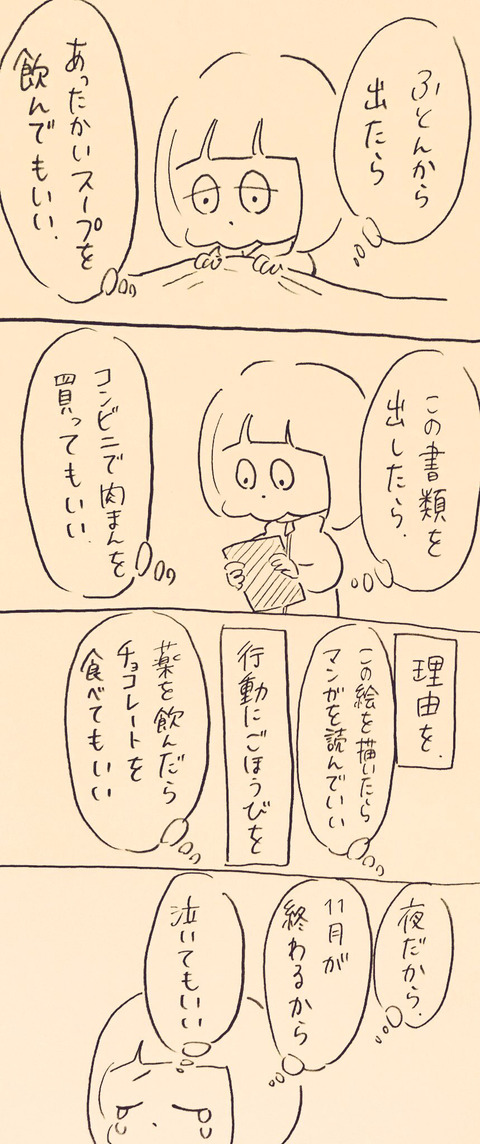 ふとんから
出たら
あったかいスープを
飲んでもいい.
この書類を
出したら.
コンビニで肉まんを
買ってもいい.
理由を.
この絵を描いたら
マンガを読んでいい
行動にごほうびを
薬を飲んだら
チョコレートを
食べてもいい
夜だから.
11月が
終わるから
泣いてもいい